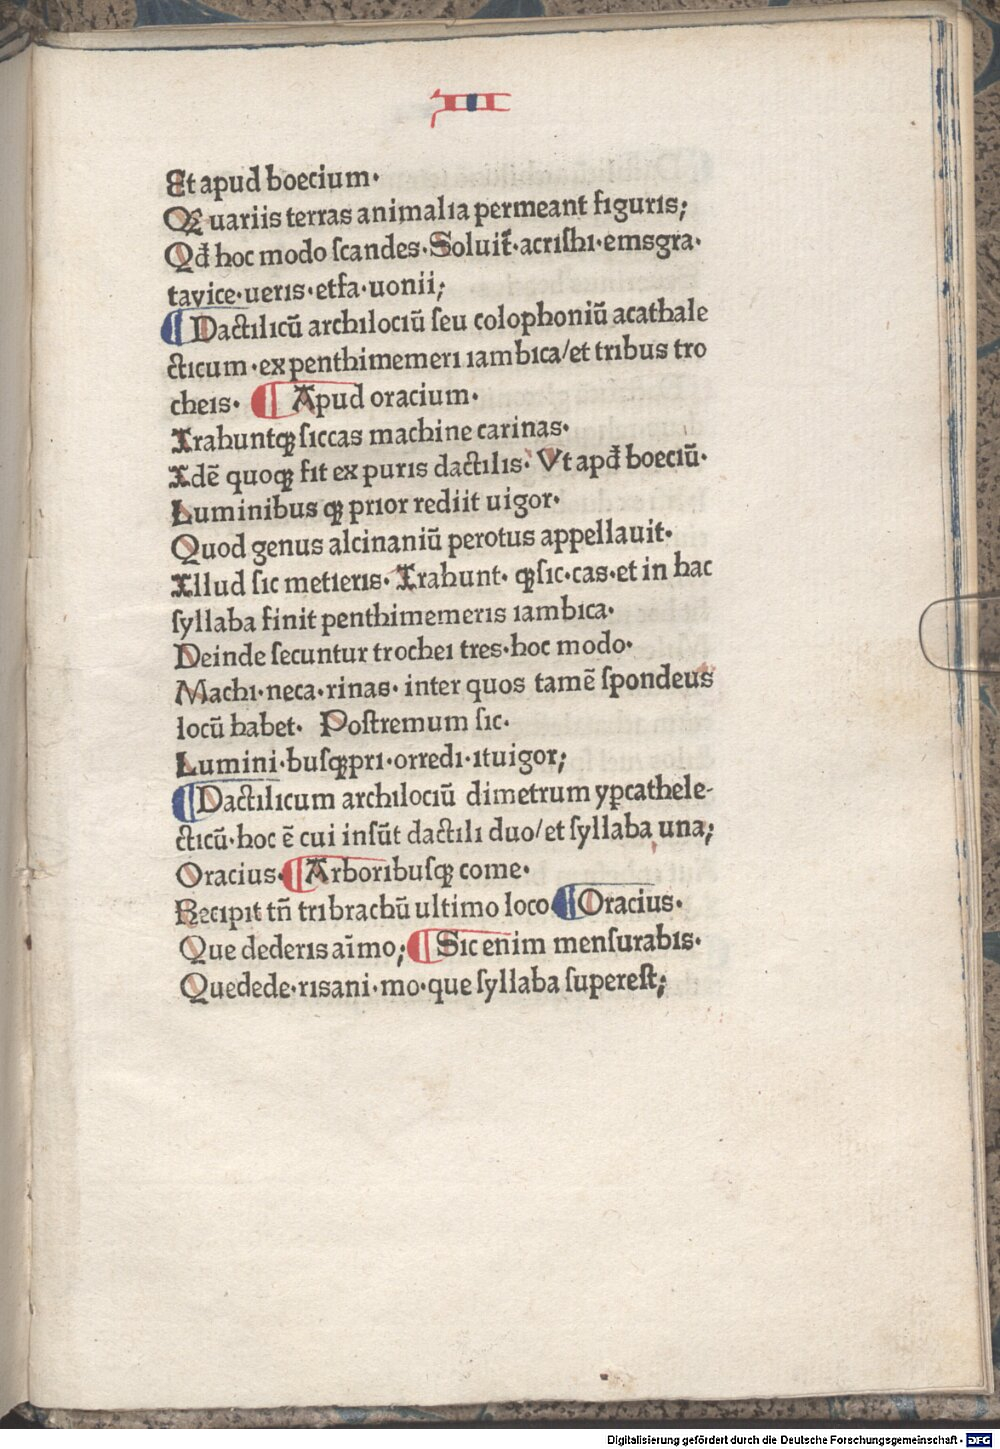 III
Et apud boecium·
Qꝫ uariis terras animalia permeant figuris;
Qđ hoc modo scandes·Soluit̃·acrishi·emsgra·
tavice·ueris·etfa·uonii;
¶ Dactilicū archilociū seu colophoniū acathale
cticum·ex penthimemeri iambica/et tribus tro
cheis· ¶ Apud oracium·
Trahuntqꝫ siccas machine carinas·
Idē quoqꝫ fit ex puris dactilis· Vt apđ boeciū·
Luminibus qꝫ prior rediit uigor·
Quod genus alcinaniū perotus appellauit·
Illud sic metieris· Trahunt· qꝫsic·cas·et in hac
syllaba finit penthimemeris iambica·
Deinde secuntur trochei tres·hoc modo·
Machi·neca·rinas· inter quos tamē spondeus
locū habet· Postremum sic·
Lumini·busqꝫpri·orredi·ituigor;
¶ Dactilicum archilociū dimetrum ypcathele-
cticū·hoc ē cui insūt dactili duo/et syllaba una;
Oracius· ¶ Arboribusqꝫ come·
Recipit tñ tribrachū ultimo loco ¶ Oracius·
Que dederis aīmo; ¶ Sic enim mensurabis·
Quedede·risani·mo·que syllaba superest;
Digitalisierung gefördert durch die Deutsche Forschungsgemeinschaft - DFG